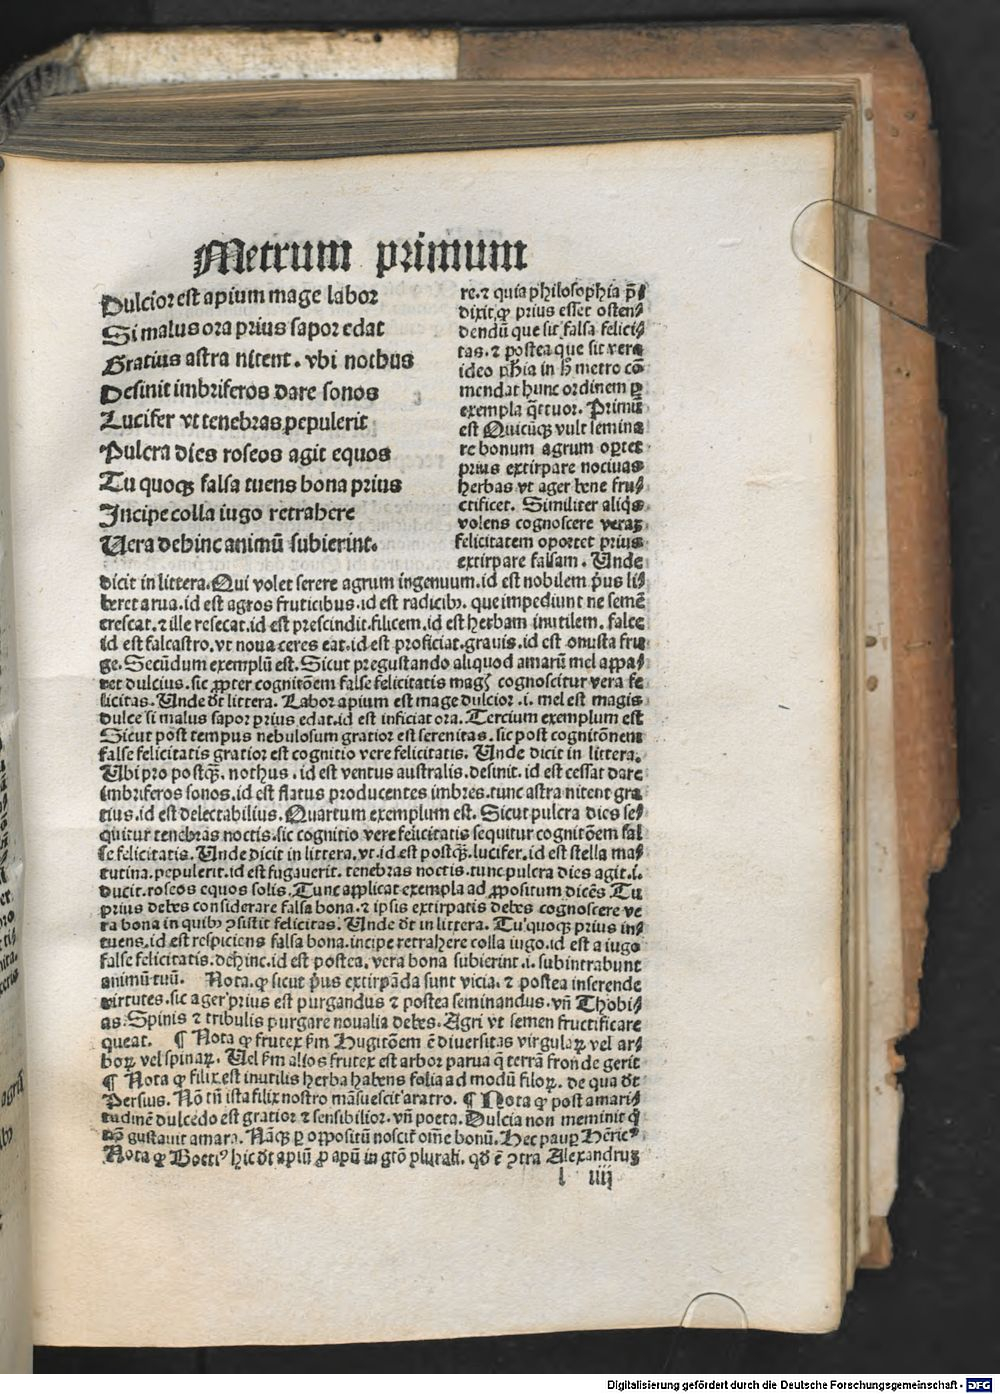 Metrum primum
Dulcior est apium mage labor
Si malus ora prius sapor edat
Gratius astra nitent. vbi nothus
Desinit imbriferos dare sonos
Lucifer vt tenebras pepulerit
Pulcra dies roseos agit equos
Tu quoqꝫ falsa tuens bona prius
Incipe colla iugo retrahere
Uera dehinc animū subierint.
re. ⁊ quia philosophia p̄⸗
dixit ꝙ prius esset osten⸗
dendū que sit falsa felici⸗
tas. ⁊ postea que sit vera
ideo ph̄ia in h̄ metro cō
mendat hunc ordinem ꝑ
exempla q̄ttuor. Primū
est Quicūqꝫ vult semina
re bonum agrum oꝑtet
prius extirpare nociuas
herbas vt ager bene fru⸗
ctificet. Similiter aliq̇s
volens cognoscere verā
felicitatem oportet prius
extirpare falsam. Unde
dicit in littera. Qui volet serere agrum ingenuum. id est nobilem p̄us li⸗
beret arua. id est agros fruticibus. id est radicibꝫ. que impediunt ne semē
crescat. ⁊ ille resecat. id est prescindit. filicem. id est herbam inutilem. falce
id est falcastro. vt noua ceres eat. id est proficiat. grauis. id est onusta fru
ge. Secūdum exemplū est. Sicut pregustando aliquod amarū mel appa⸗
ret dulcius. sic ꝓpter cognitōem false felicitatis magꝭ cognoscitur vera fe
licitas. Unde dt̄ littera. Labor apium est mage dulcior .i. mel est magis
dulce si malus sapor prius edat. id est inficiat ora. Tercium exemplum est
Sicut post tempus nebulosum gratior est serenitas. sic post cognitōnem
false felicitatis gratior est cognitio vere felicitatis. Unde dicit in littera.
Ubi pro postqꝫ. nothus. id est ventus australis. desinit. id est cessat dare
imbriferos sonos. id est flatus producentes imbres. tunc astra nitent gra
tius. id est delectabilius. Quartum exemplum est. Sicut pulcra dies se⸗
quitur tenebras noctis. sic cognitio vere felicitatis sequitur cognitōem fal
se felicitatis. Unde dicit in littera. vt. id est postqꝫ. lucifer. id est stella ma⸗
tutina. pepulerit. id est fugauerit. tenebras noctis. tunc pulcra dies agit .i.
ducit. roseos equos solis. Tunc applicat exempla ad ꝓpositum dicēs Tu
prius debes considerare falsa bona. ⁊ ipsis extirpatis debes cognoscere ve
ra bona in quibꝫ ꝯsistit felicitas. Unde dt̄ in littera. Tu quoqꝫ prius in⸗
tuens. id est respiciens falsa bona. incipe retrahere colla iugo. id est a iugo
false felicitatis. dehinc. id est postea. vera bona subierint .i. subintrabunt
animū tuū. Nota. ꝙ sicut p̄us extirpāda sunt vicia. ⁊ postea inserende
virtutes. sic ager prius est purgandus ⁊ postea seminandus. vn̄ Thobi⸗
as. Spinis ⁊ tribulis purgare noualia debes. Agri vt semen fructificare
queat. ¶ Nota ꝙ frutex ẜm Hugitōem ē diuersitas virgulaꝝ vel ar⸗
boꝝ vel spinaꝝ. Uel ẜm alios frutex est arbor parua q̄ terrā fronde gerit
¶ Nota ꝙ filix est inutilis herba habens folia ad modū filoꝝ. de qua dt̄
Persius. Nō tn̄ ista filix nostro māsuescit aratro. ¶ Nota ꝙ post amari⸗
tudinē dulcedo est gratior ⁊ sensibilior. vn̄ poeta. Dulcia non meminit q̄
nō gustauit amara. Nāqꝫ ꝑ oppositū noscit̄ om̄e bonū. Hec pauꝑ Hēricꝰ
Nota ꝙ Boetiꝰ hic dt̄ apiū ꝓ apū in gtō plurali. qd̄ ē ꝯtra Alexandrū
l iiij
Digitalisierung gefördert durch die Deutsche Forschungsgemeinschaft - DFG